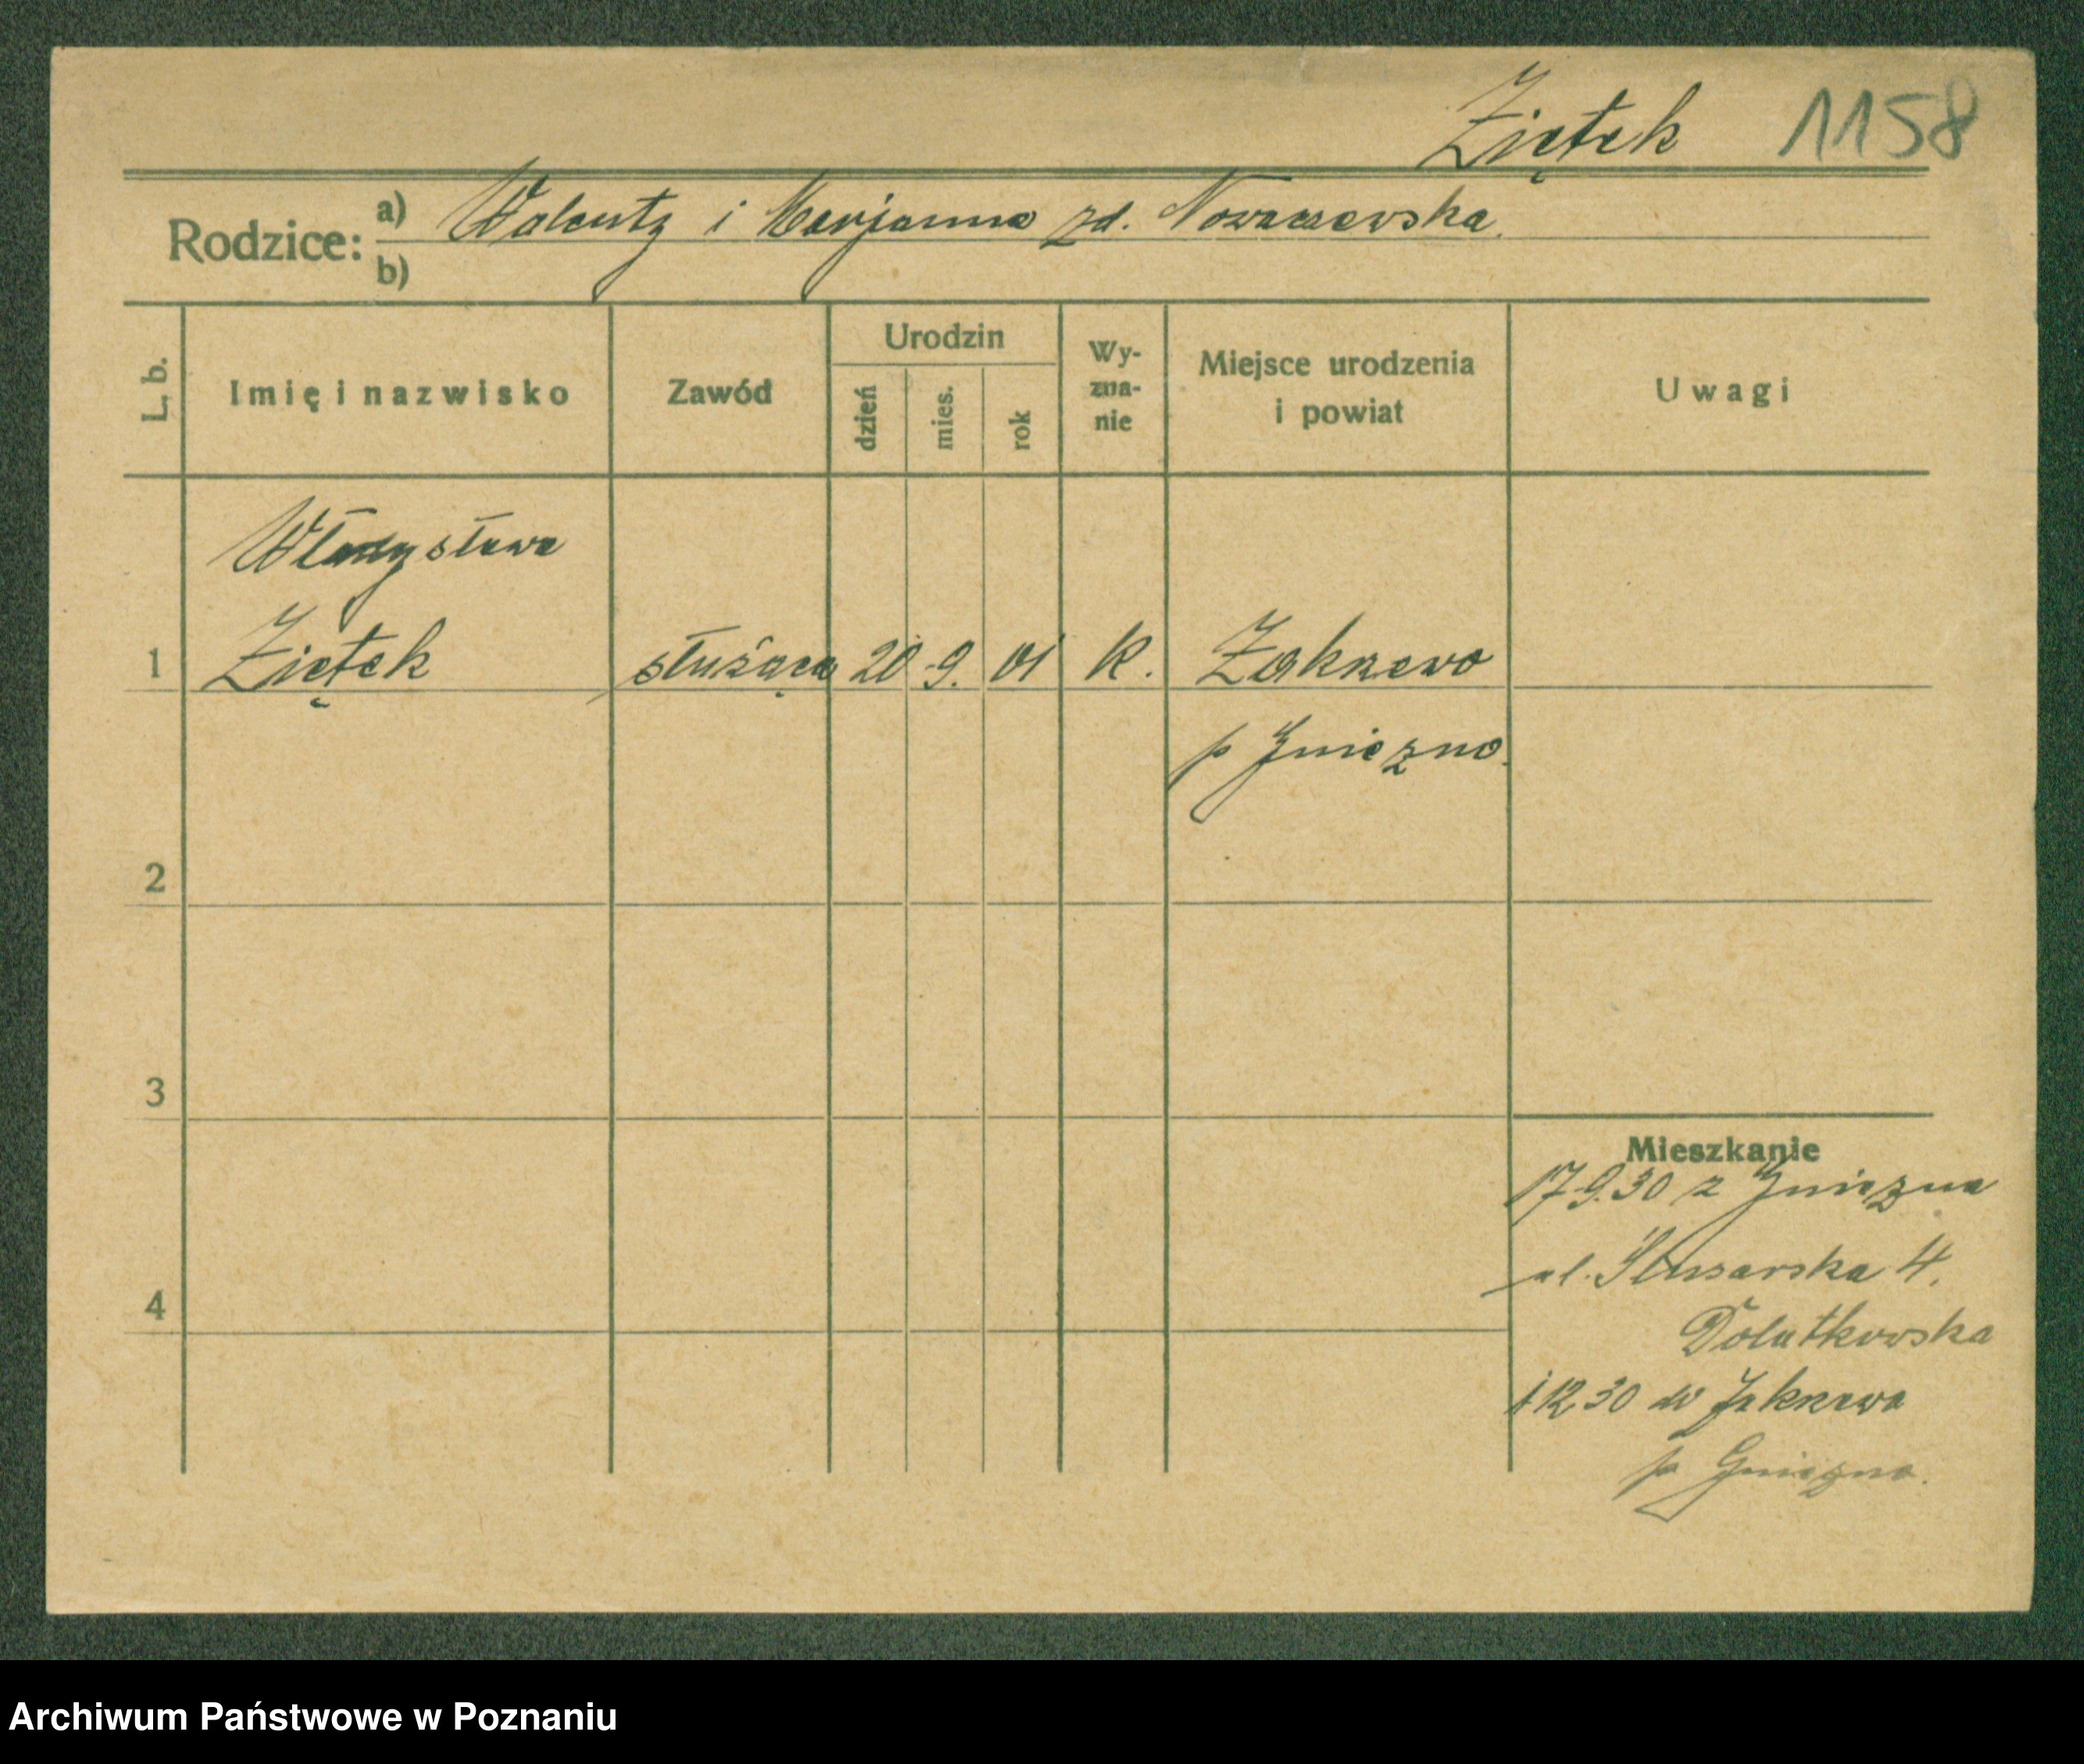 Ziętek 1158
Rodzice: a) Walenty i Marjanna zd. Nowaczewska.
b)
L. b. Imię i nazwisko Zawód Urodzin dzień mies. rok Wy-zna-nie Miejsce urodzenia i powiat Uwagi
Władysława
1 Ziętek służąca 20 9. 01 K. Zakrzewo
p Gniezno.
2
3
Mieszkanie
17.9.30 z Gniezna
ul. Ślusarska 4.
4
Dolatkowska
1 12 30 do Zakrzewa
p Gniezno.
Archiwum Państwowe w Poznaniu